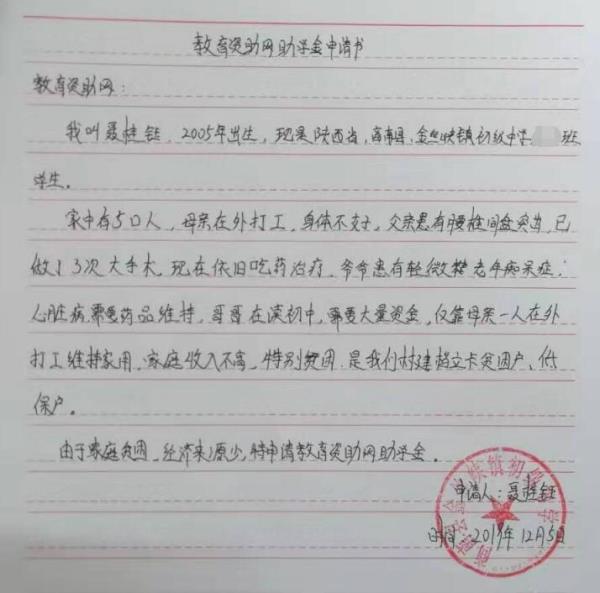 教育资助网助学金申请书
教育资助网：
我叫聂桂钰，2005年出生，现是陕西省，商南县，金丝峡镇初级中学 班
学生。
家中有5口人，母亲在外打工，身体不好，父亲患有腰椎间盘突出，已
做了3次大手术，现在依旧吃药治疗，爷爷患有轻微老年痴呆症，
心脏病需要药品维持，哥哥在读初中，需要大量资金，仅靠母亲一人在外
打工维持家用，家庭收入不高，特别贫困，是我们村建档立卡贫困户、低
保户。
由于家庭贫困，经济来源少，特申请教育资助网助学金。
申请人：聂桂钰
时间：2019年12月5日
商南县金丝峡镇初级中学